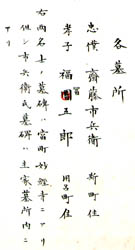 各墓所
忠僕 齋藤市兵衛 新町住
孝子 福 五郎 町住
右両名ノ墓碑ハ 町妙経寺ニアリ
但シ市兵衛氏墓碑ハ主家墓所内ニ
アリ